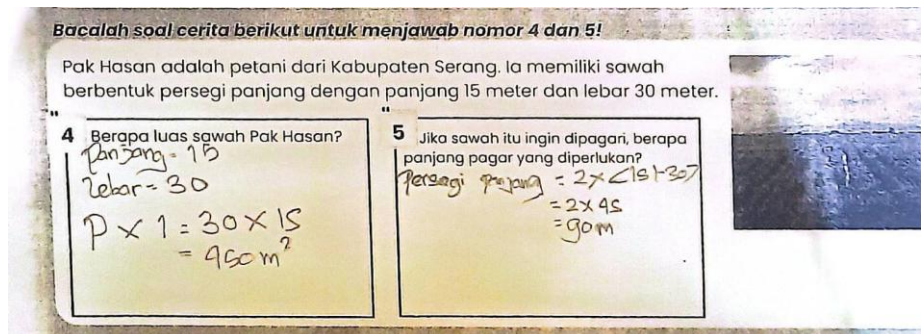 Bacalah soal cerita berikut untuk menjawab nomor 4 dan 5!
Pak Hasan adalah petani dari Kabupaten Serang. Ia memiliki sawah
berbentuk persegi panjang dengan panjang 15 meter dan lebar 30 meter.
4 Berapa luas sawah Pak Hasan?
Panjang = 15
Lebar = 30
P × l = 30 × 15
= 450 m²
5 Jika sawah itu ingin dipagari, berapa
panjang pagar yang diperlukan?
Persegi panjang = 2 × (15+30)
= 2 × 45
= 90 m